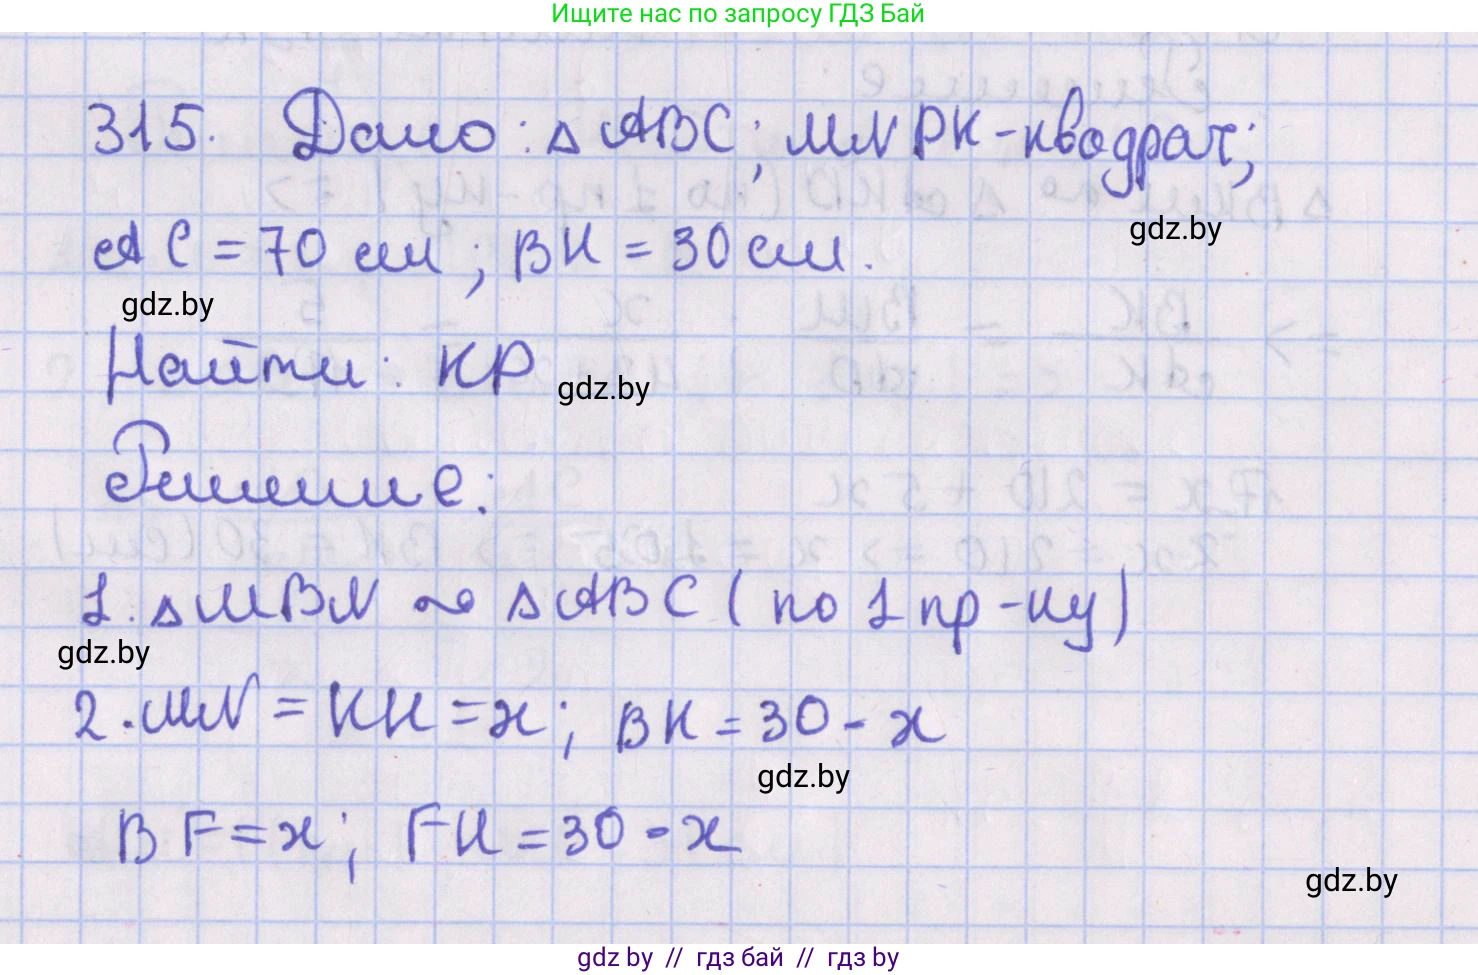 Ищите нас по запросу ГДЗ Бай
315. Дано: △ABC; MNPK - квадрат;
gdz.by
AC = 70 см; BH = 30 см.
gdz.by
Найти: KP
gdz.by
Решение:
1. △MBN ∾ △ABC (по 1 пр-ку)
gdz.by
2. MN = KH = x; BK = 30 - x
gdz.by
BF = x; FH = 30 - x
gdz.by
gdz by // гдз бай // гдз by